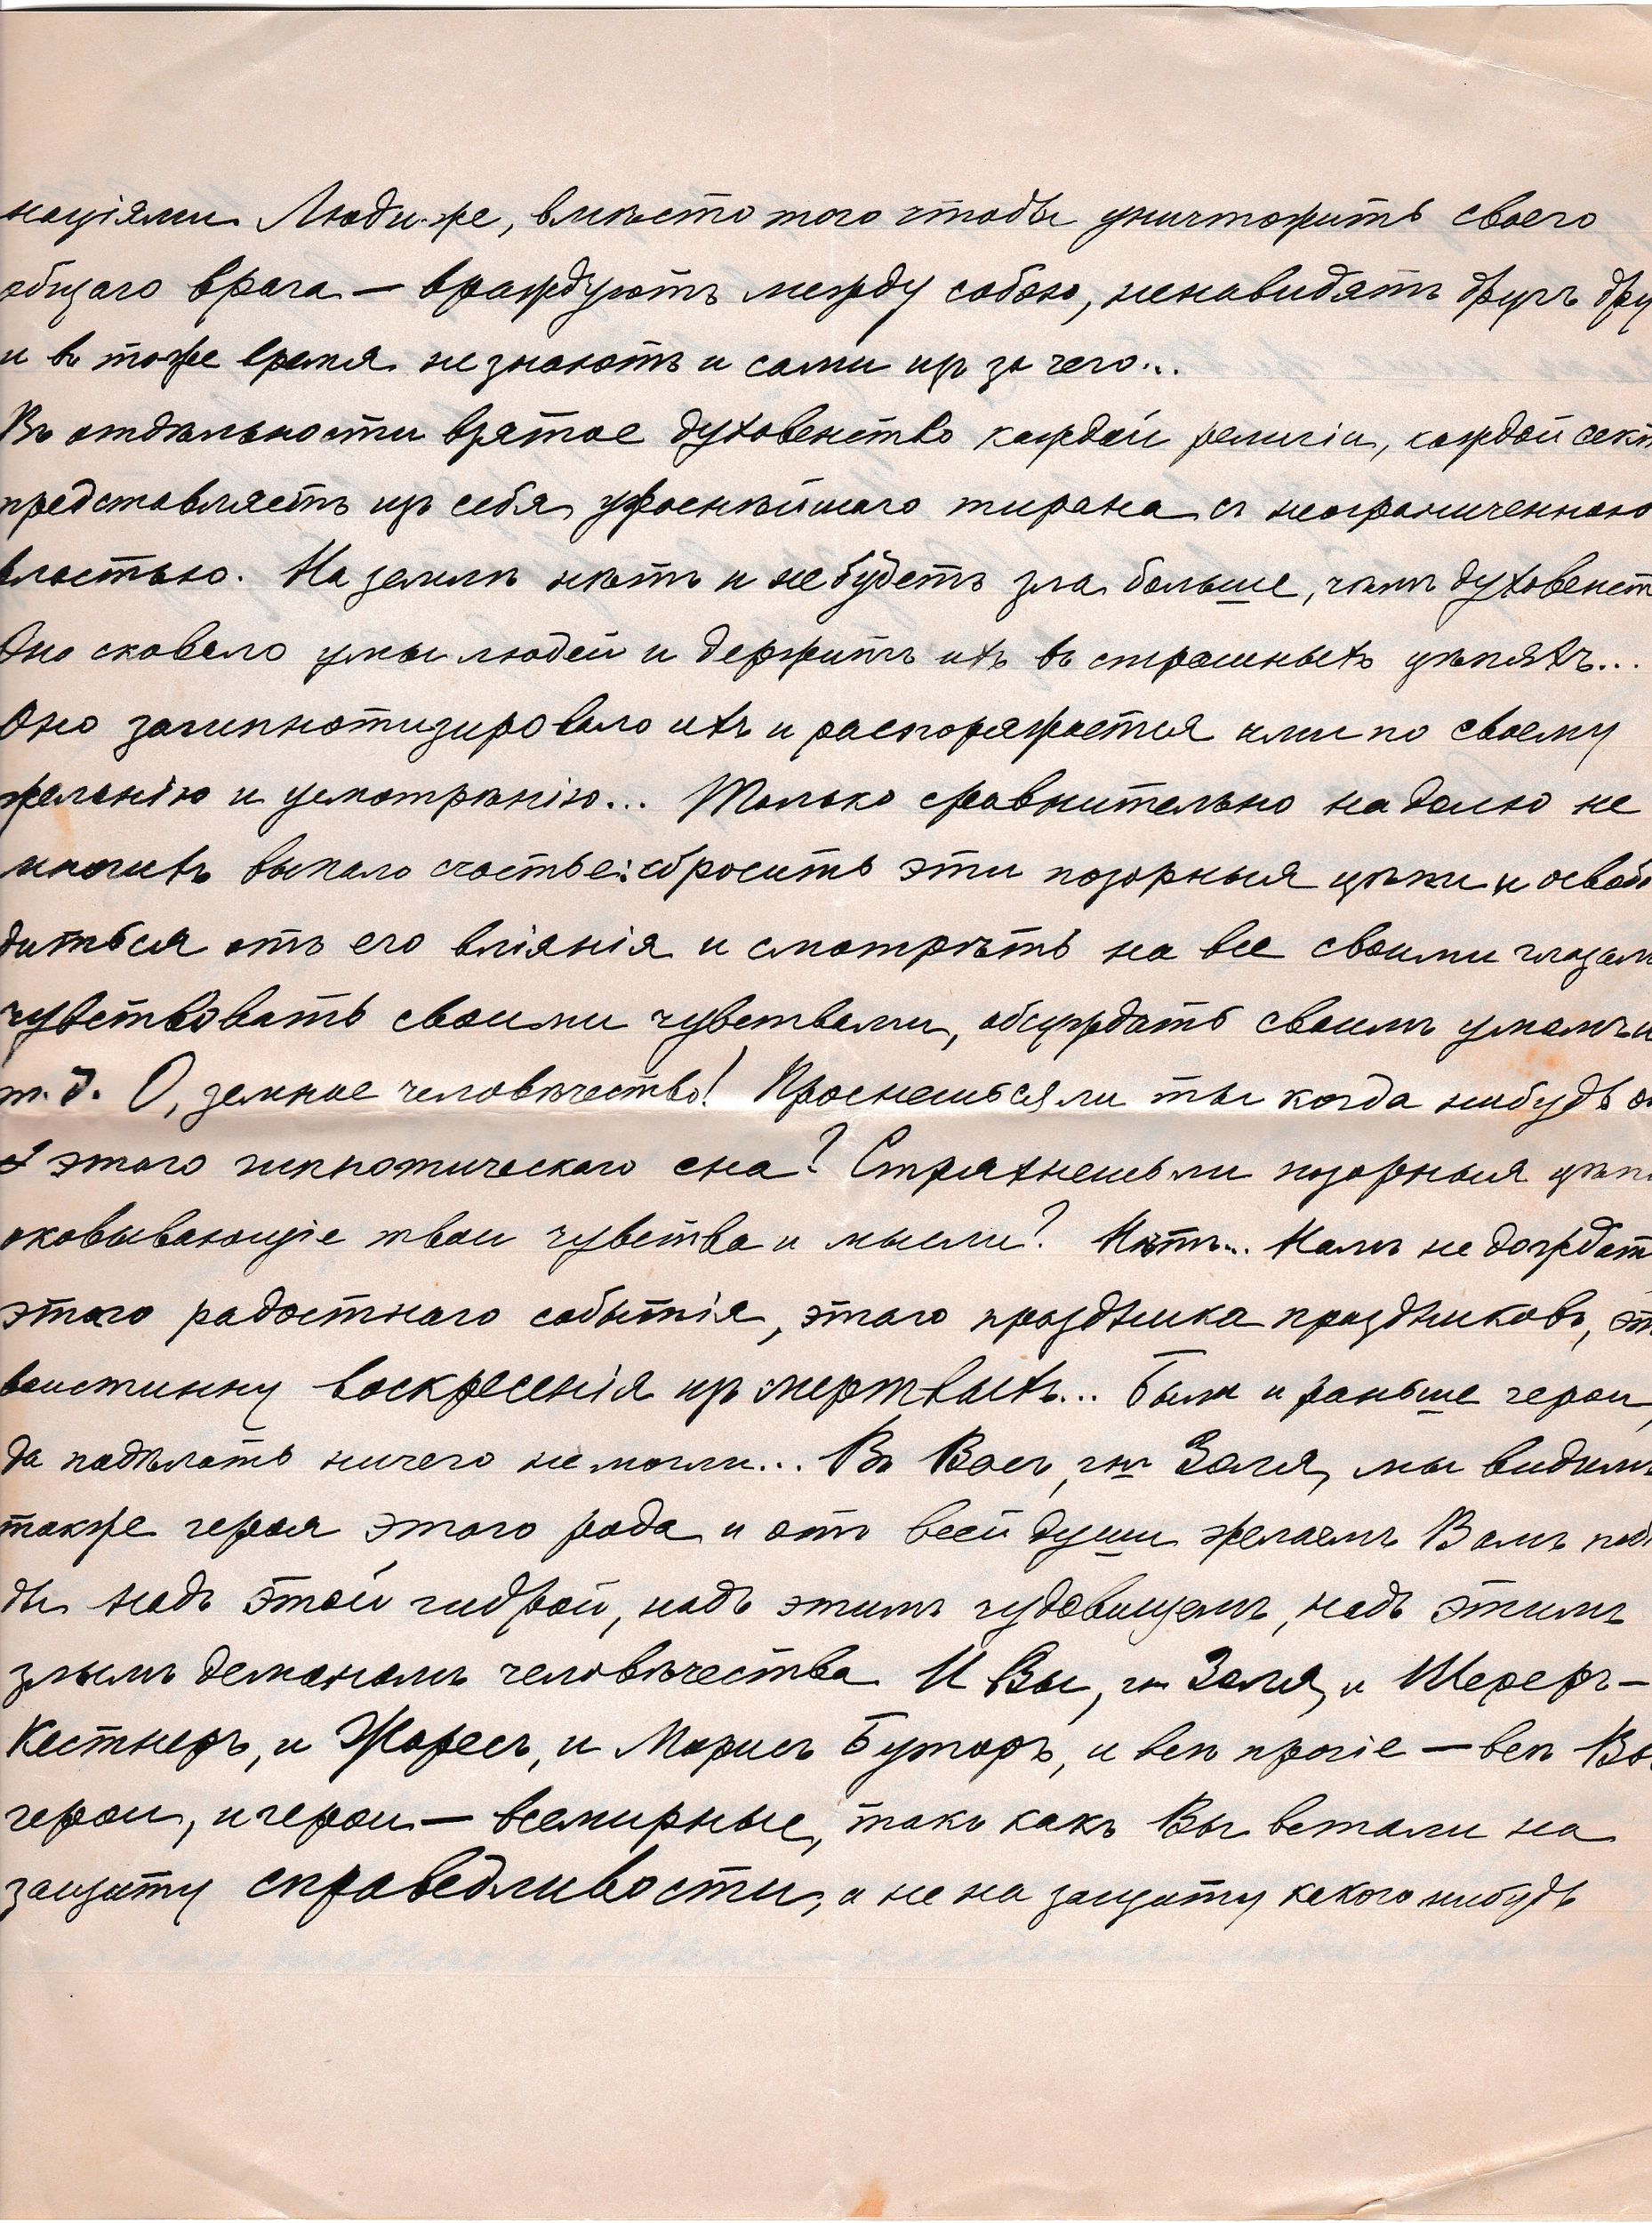 націями. Люди-же, вмѣсто того чтобы уничтожить своего
общаго врага — враждуютъ между собою, ненавидятъ другъ дру
и въ тоже время не знаютъ и сами изъ за чего...
Въ отдѣльности взятое духовенство каждой религіи, каждой сект
представляетъ изъ себя ужаснѣйшаго тирана съ неограниченною
властью. На землѣ нѣтъ и не будетъ зла больше, чѣмъ духовенст
Оно сковало умы людей и держитъ ихъ въ страшныхъ цѣпяхъ...
Оно загипнотизировало ихъ и распоряжается ими по своему
желанію и усмотрѣнію... Только сравнительно на долю не
многихъ выпало счастье: сбросить эти позорныя цѣпи и освобо
диться отъ его вліянія и смотрѣть на все своими глазам
чувствовать своими чувствами, обсуждать своимъ умомъ и
т. д. О, земное человѣчество! Проснешься ли ты когда нибудь о
т этого гипнотическаго сна? Стряхнешь ли позорныя цѣпи
оковывающіе твои чувства и мысли? Нѣтъ... Намъ не дождат
этого радостнаго событія, этого праздника праздниковъ, эт
воистинну воскресенія изъ мертвыхъ... Были и раньше герои,
да подѣлать ничего не могли... Въ Васъ, гнъ Золя, мы видимъ
также героя этого рода и отъ всей души желаемъ Вамъ побѣ
ды надъ этой гидрой, надъ этимъ чудовищемъ, надъ этимъ
злымъ демономъ человѣчества И Вы, гнъ Золя, и Шереръ-
Кестнеръ, и Жоресъ, и Морисъ Буторъ, и всѣ прочіе — всѣ Вы
герои, и герои — всемирные, такъ какъ Вы встали на
защиту справедливости, а не на защиту какого нибудь